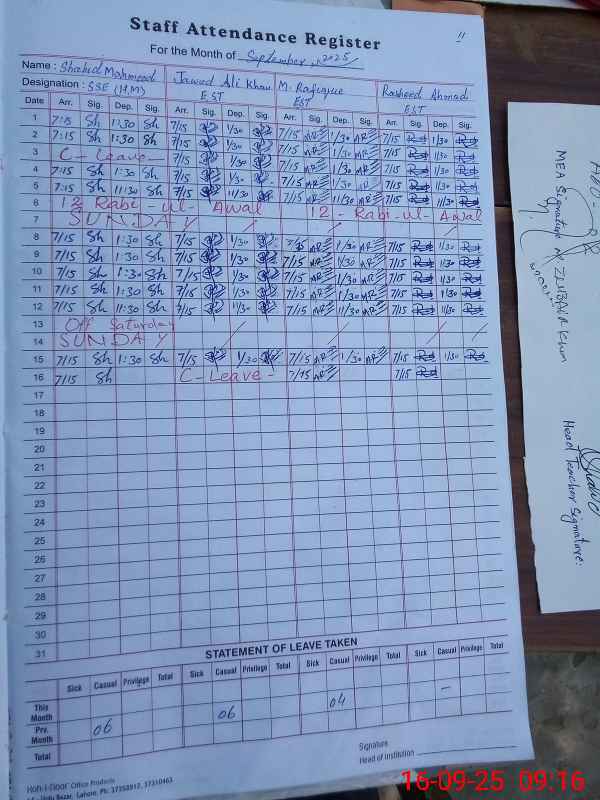 11
Staff Attendance Register
For the Month of September, 2025
Name : Shahid Mahmood Jawad Ali Khan M. Rafique Rasheed Ahmad
Designation : SSE (H,M) EST EST EST
Date Arr. Sig. Dep. Sig. Arr. Sig. Dep. Sig. Arr. Sig. Dep. Sig. Arr. Sig. Dep. Sig.
1 7:15 Sh 1:30 Sh 7/15 1/30 7/15 AR 1/30 AR 7/15 1/30
2 7:15 Sh 1:30 Sh 7/15 1/30 7/15 AR 1/30 AR 7/15 1/30
3 C - Leave - 7/15 1/30 7/15 AR 1/30 AR 7/15 1/30
4 7:15 Sh 1:30 Sh 7/15 1/30 7/15 AR 1/30 AR 7/15 1/30
5 7:15 Sh 11:30 Sh 7/15 11/30 7/15 AR 11/30 AR 7/15 11/30
6 12 - Rabi - ul - Awal 12 - Rabi - ul - Awal
7 SUNDAY
8 7/15 Sh 1:30 Sh 7/15 1/30 7/15 AR 1/30 AR 7/15 1/30
9 7/15 Sh 1:30 Sh 7/15 1/30 7/15 AR 1/30 AR 7/15 1/30
10 7/15 Sh 1:30 Sh 7/15 1/30 7/15 AR 1/30 AR 7/15 1/30
11 7/15 Sh 1:30 Sh 7/15 1/30 7/15 AR 1/30 AR 7/15 1/30
12 7/15 Sh 11:30 Sh 7/15 11/30 7/15 AR 11/30 AR 7/15 11/30
13 Off Saturday
14 SUNDAY
15 7/15 Sh 1:30 Sh 7/15 1/30 7/15 AR 1/30 AR 7/15 1/30
16 7/15 Sh C - Leave - 7/15 AR 7/15
17
18
19
20
21
22
23
24
25
26
27
28
29
30
31
STATEMENT OF LEAVE TAKEN
Sick Casual Privilege Total Sick Casual Privilege Total Sick Casual Privilege Total Sick Casual Privilege Total
This Month
Prv. Month 06 06 04 -
Total
Signature
Head of Institution
Office Products
Urdu Bazar, Lahore. Ph: 37352912, 37310463
MEA Signature
Head Teacher Signature:
16-09-25 09:16